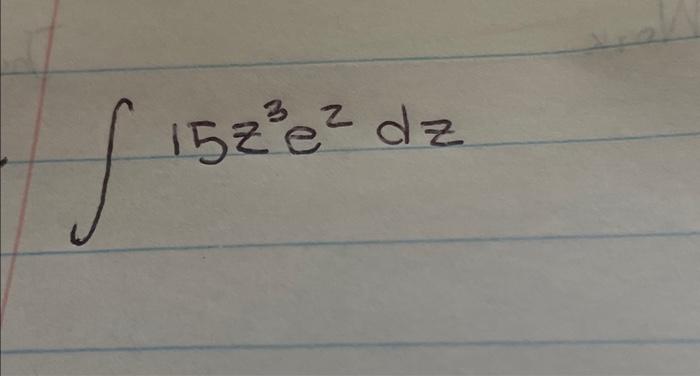 ∫ 15z³e² dz